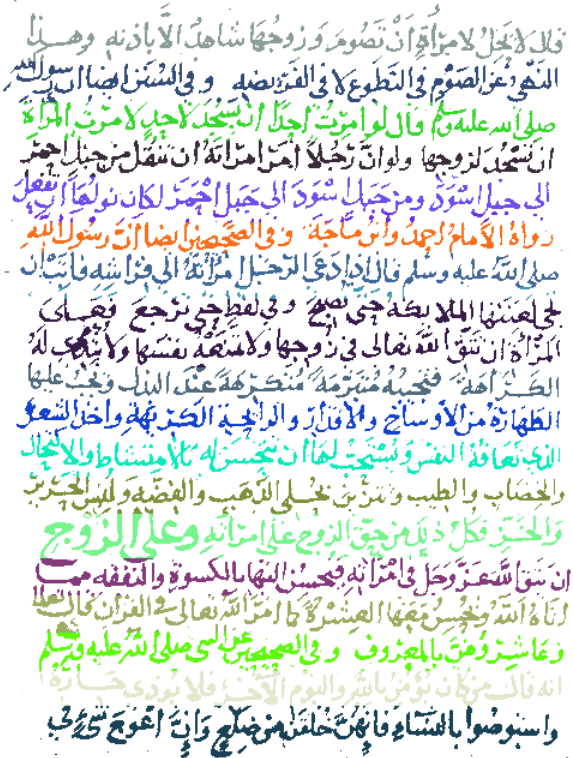 قال لا يحل لامرأة أن تصوم وزوجها شاهد الا باذنه وهذا
النهي عن الصوم في التطوع لا في الفريضه وفي السنن ايضا ان رسول الله
صلى الله عليه وسلم قال لو امرت احدا ان يسجد لاحد لامرت المرأة
ان تسجد لزوجها ولو ان رجلا امر امراته ان تنقل من جبل احمر
الى جبل اسود ومن جبل اسود الى جبل احمر لكان نولها ان تفعل
رواه الامام احمد وابن ماجة وفي الصحيحين ايضا ان رسول الله
صلى الله عليه وسلم قال اذا دعى الرجل امراته الى فراشه فابت ان
تجى لعنتها الملايكة حتى تصبح وفي لفظ حتى ترجع فعلى
المرأة ان تتقي الله تعالى في زوجها ولا تمنعه نفسها ولا تبدي له
الكراهة فتجيبه متبرمة متكرهة عند البذل ويجب عليها
الطهارة من الاوساخ والاقذار والرايحة الكريهة واخذ الشعر
الذي تعافه النفس ويستحب لها ان تتحسن له بالامتشاط والاكتحال
والخضاب والطيب وتتزين بحلي الذهب والفضة ولبس الحرير
والخز فكل ذلك من حق الزوج على امراته وعلى الزوج
ان يتق الله عز وجل في امراته فيحسن اليها بالكسوة والنفقه مما
اتاه الله ويحسن معها العشرة كما امر الله تعالى في القران قال تعالى
وعاشروهن بالمعروف وفي الصحيحين عن النبي صلى الله عليه وسلم
انه قال من كان يؤمن بالله واليوم الآخر فلا يوذي جاره
واستوصوا بالنساء فانهن خلقن من ضلع وان اعوج شيء في